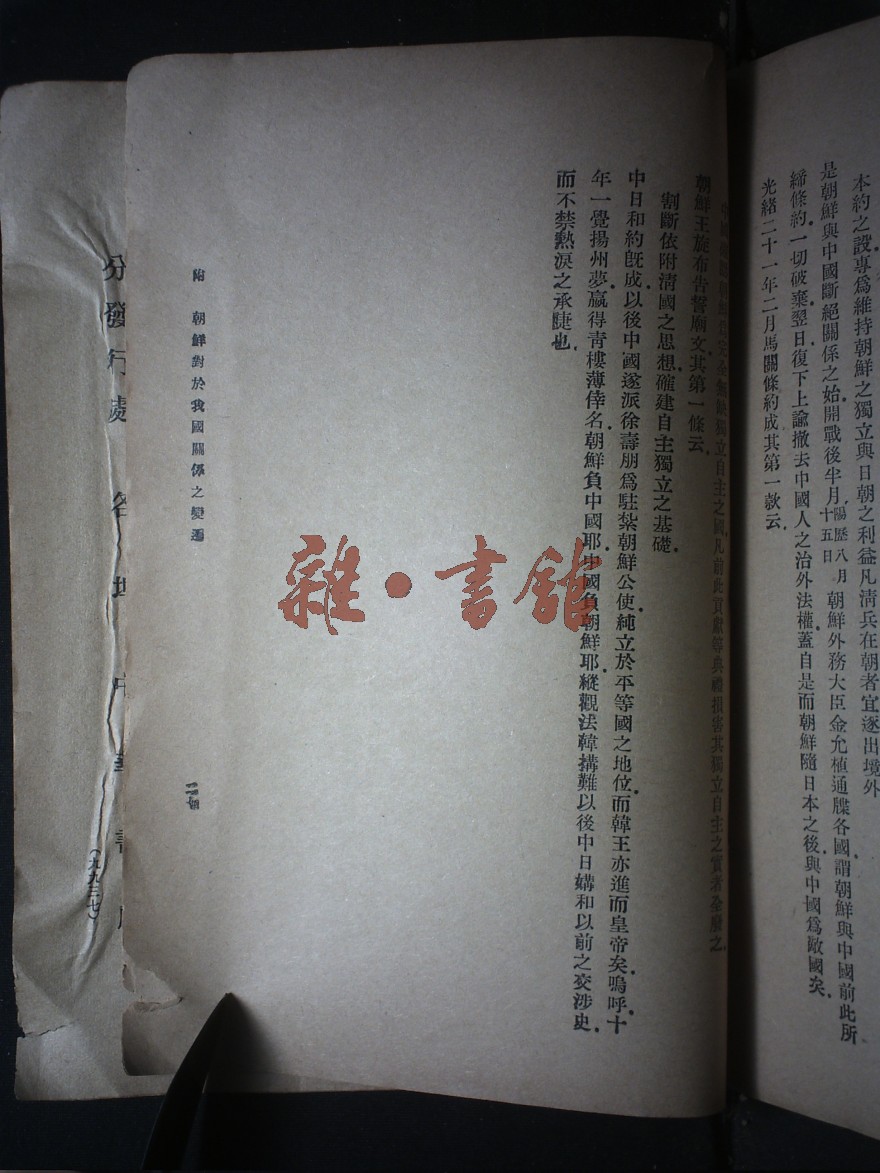 本約之設專爲維持朝鮮之獨立與日朝之利益凡淸兵在朝者宜逐出境外
是朝鮮與中國斷絕關係之始開戰後半月陽歷八月十五日朝鮮外務大臣金允植通牒各國謂朝鮮與中國前此所
締條約一切破棄翌日復下上諭撤去中國人之治外法權蓋自是而朝鮮隨日本之後與中國爲敵國矣
光緖二十一年二月馬關條約成其第一款云
完全無缺獨立自主之國凡前此貢獻等典禮損害其獨立自主之實者全廢之
朝鮮王旋布告誓廟文其第一條云
割斷依附淸國之思想確建自主獨立之基礎
中日和約旣成以後中國遂派徐壽朋爲駐紮朝鮮公使純立於平等國之地位而韓王亦進而皇帝矣嗚呼十
年一覺揚州夢贏得靑樓薄倖名朝鮮負中國耶中國負朝鮮耶縱觀法韓搆難以後中日媾和以前之交涉史
而不禁熱淚之承睫也
附 朝鮮對於我國關係之變遷
分發行處 各埠中華書局
(九九三七)
雜·書館